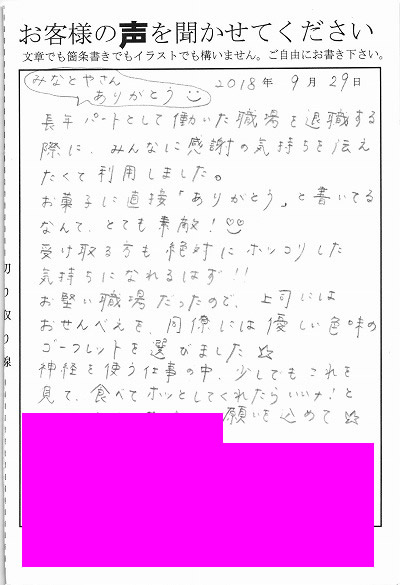 お客様の声を聞かせてください
文章でも箇条書きでもイラストでも構いません。ご自由にお書き下さい。
みなとやさん
ありがとう
2018年 9月 29日
長年パートとして働いた職場を退職する
際に、みんなに感謝の気持ちを伝え
たくて利用しました。
お菓子に直接「ありがとう」と書いてる
なんて、とても素敵!
受け取る方も絶対にホッコリした
気持ちになれるはず!!
お堅い職場だったので、上司には
おせんべえを、同僚には優しい色味の
ゴーフレットを選びました☆
神経を使う仕事の中、少しでもこれを
見て、食べてホッとしてくれたらいいナ!と
願いを込めて☆
切り取り線